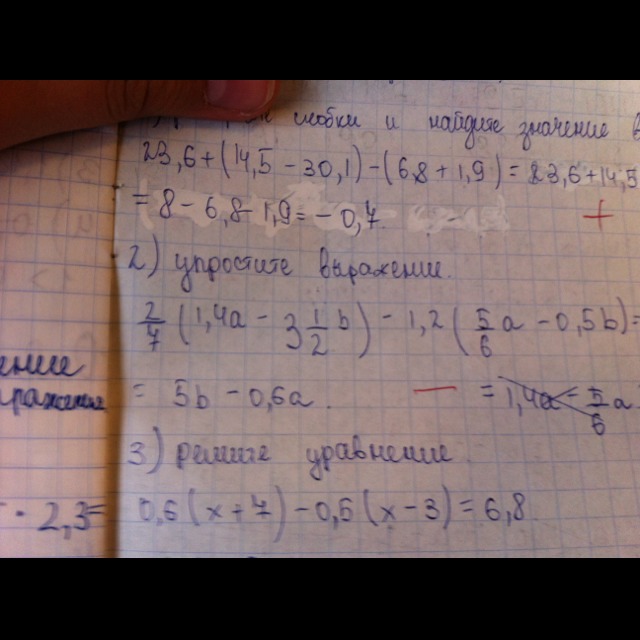 скобки и найдите значение в
23,6+(14,5-30,1)-(6,8+1,9)=23,6+14,5
=8-6,8-1,9=-0,7 +
2) упростите выражение.
2/7 (1,4a - 3 1/2 b) - 1,2 (5/6 a - 0,5b)=
ение
= 5b - 0,6a — = 1,4a - 5/6 a
ражение
3) решите уравнение
- 2,3= 0,6(x+7)-0,5(x-3)=6,8